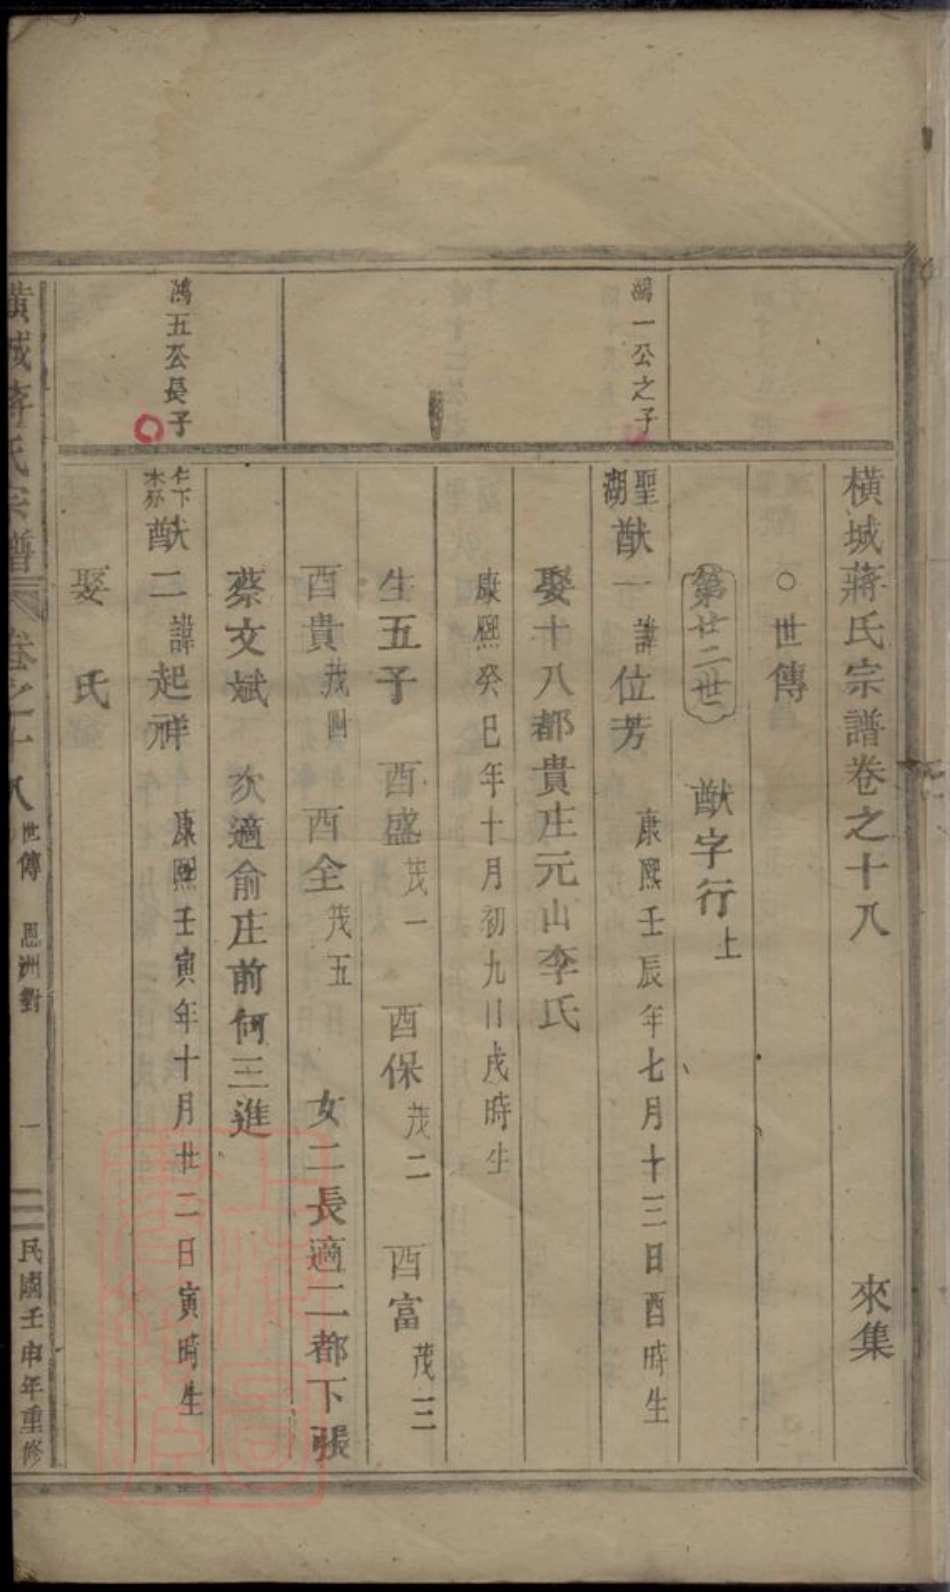 橫城蔣氏宗譜卷之十八 來集
○世傳
第廿二世 猷字行上
鴻一公之子
聖湖 猷一 諱位芳 康熙壬辰年七月十三日酉時生
娶十八都貴庄元山李氏
康熙癸巳年十月初九日戌時生
生五子 酉盛茂一 酉保茂二 酉富茂三
酉貴茂四 酉全茂五 女二長適二都下張
蔡文斌 次適俞庄前何三進
鴻五公長子
仁下 猷二 諱起祥 康熙壬寅年十月廿二日寅時生
娶 氏
橫城蔣氏宗譜 卷之十八 世傳 思洲對 一 民國壬申年重修
上海圖書館藏